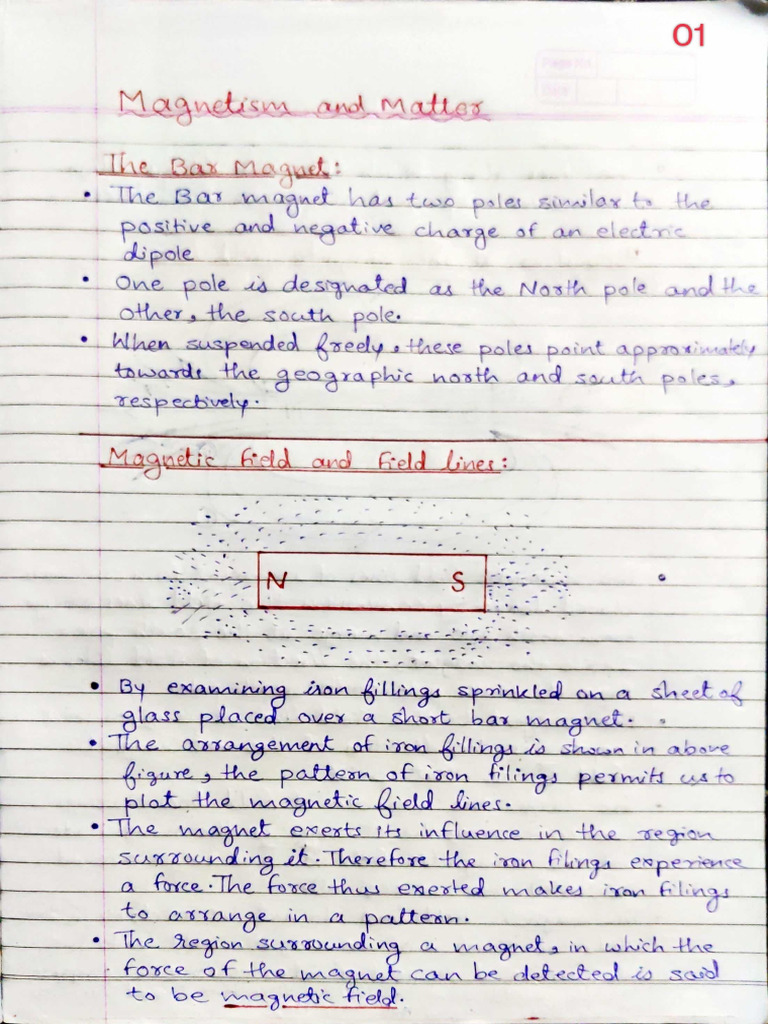 01
Page No.
Date
Magnetism and Matter
The Bar Magnet:
• The Bar magnet has two poles similar to the
positive and negative charge of an electric
dipole
• One pole is designated as the North pole and the
other, the south pole.
• When suspended freely, these poles point approximately
towards the geographic north and south poles,
respectively.
Magnetic field and field lines:
N S
• By examining iron fillings sprinkled on a sheet of
glass placed over a short bar magnet.
• The arrangement of iron fillings is shown in above
figure, the pattern of iron filings permits us to
plot the magnetic field lines.
• The magnet exerts its influence in the region
surrounding it. Therefore the iron filings experience
a force. The force thus exerted makes iron filings
to arrange in a pattern.
• The region surrounding a magnet, in which the
force of the magnet can be detected is said
to be magnetic field.